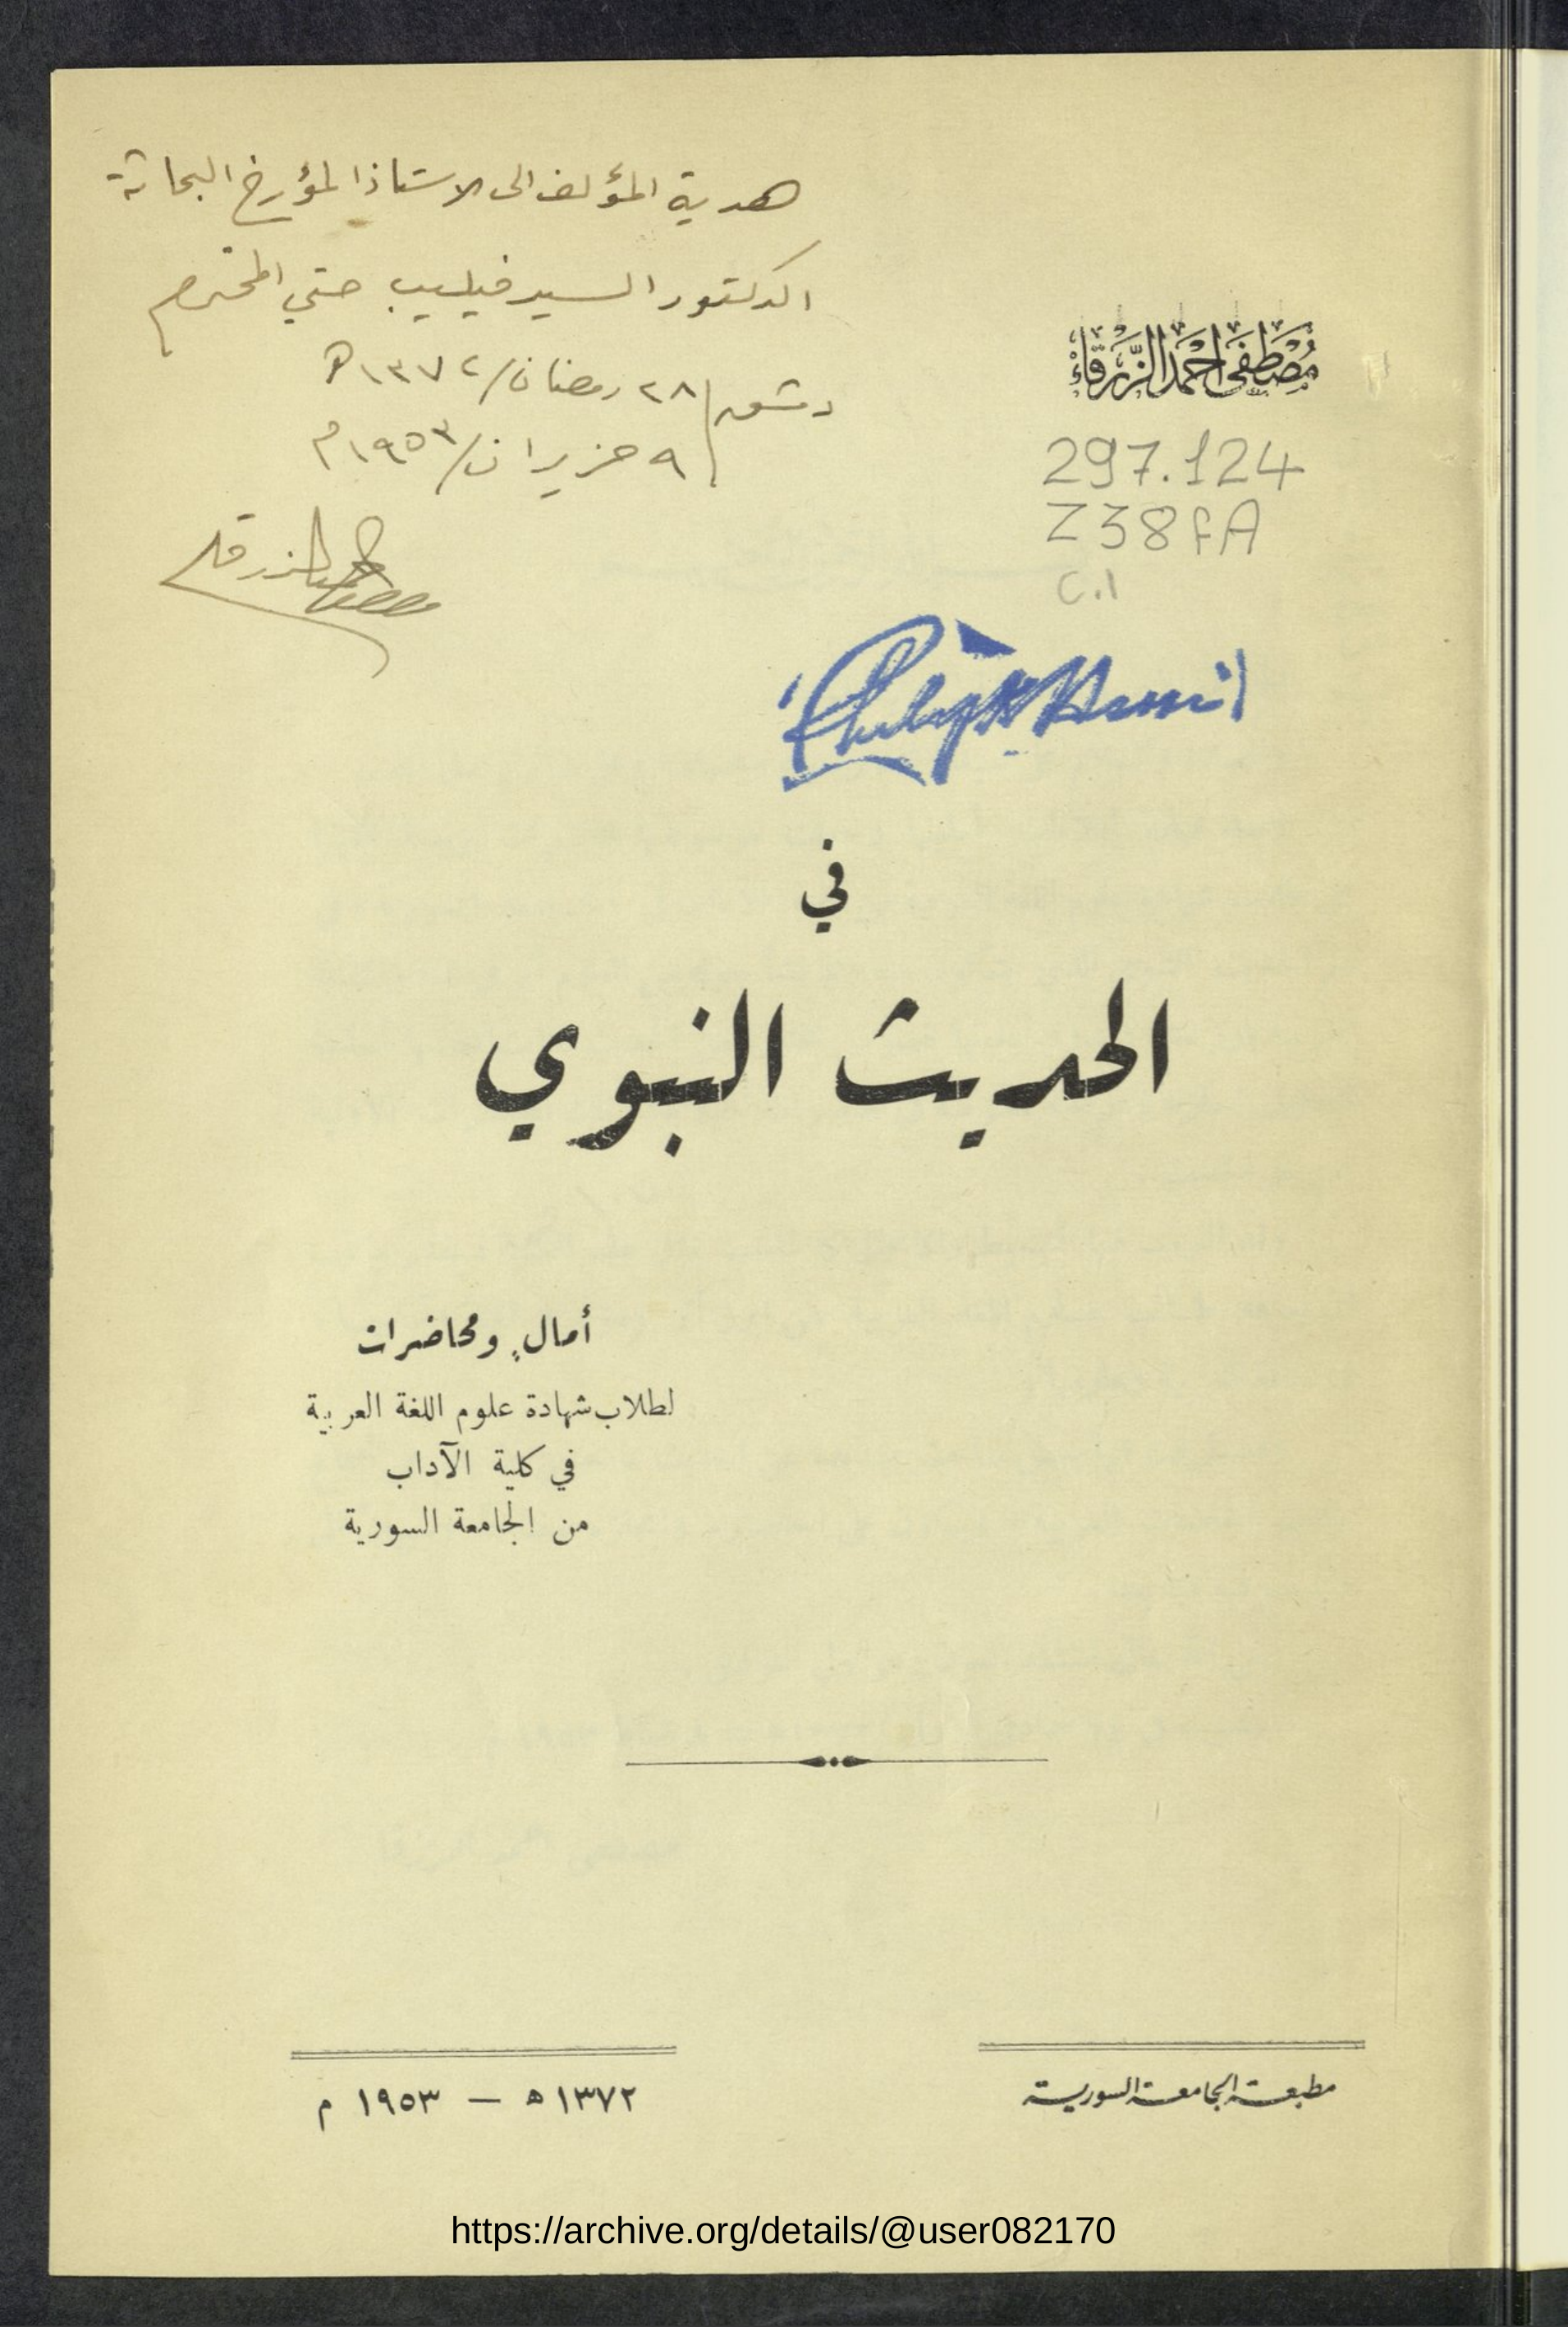 هدية المؤلف الى الاستاذ المؤرخ البحاثة
الدكتور السيد فيليب حتي المحترم
دمشق/ ٢٨ رمضان/ ١٣٧٢ هـ
٩ حزيران/ ١٩٥٣ م
مصطفى الزرقا
مُصْطَفَى أَحْمَد الزَّرْقَاءْ
297.124
Z38fA
C.1
Philip K Hitti
في
الحديث النبوي
أمالٍ ومحاضرات
لطلاب شهادة علوم اللغة العربية
في كلية الآداب
من الجامعة السورية
مطبعة الجامعة السورية
١٣٧٢ ه — ١٩٥٣ م
https://archive.org/details/@user082170